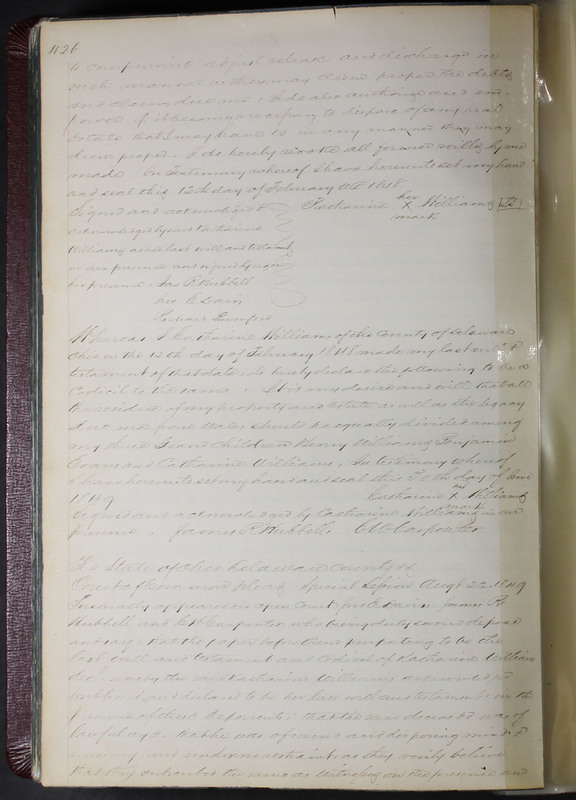 426
to compromise adjust release and discharge in
such manner as they may deem proper the debts
and claims due me; I do also authorize and em-
power if it become necessary to dispose of any real
Estate that I may have in any manner they may
deem proper. I do hereby revoke all former wills by me
made In testimony whereof I have hereunto set my hand
and seal this 12th day of February AD 1848
Signed and acknowledged & Katharine her X mark Williams
acknowledged by said Katharine
Williams as her last will and testament
in our presence and signed by us in
her presence. Jas R Hubbell
Geo E Davis
Richard
Whereas I Katharine Williams of the County of Delaware
Ohio on the 12th day of February 1848 made my last will &
testament of that date do hereby declare the following to be a
Codicil to the same It is my desire and will that all
the residue of my property and Estate as well as the legacy
from Wales should be equally divided among
my three Grand Children Henry Williams Benjamin
Evans and Catharine Williams. In testimony whereof
I have hereunto set my hand and seal this 30th day of June
1849 Catharine her X mark Williams
Signed and acknowledged by Catharine Williams in our
presence, James R Hubbell. C H Carpenter
The State of Ohio Delaware County ss
Court of Common Pleas Special Session Augt 22. 1849
Personally appeared in open Court James R.
Hubbell and C H Carpenter who being duly sworn depose
and say that the paper before them purporting to be the
last will and testament and Codicil of Katharine Williams
decd. the said Katharine Williams acknowledged
published, and declared to be her last will and testament in the
presence of these deponents; that the said deceased was of
lawful age, that she was of sound and disposing mind &
memory and under no restraint as they verily believe
that they subscribed the same as witnesses in the presence and